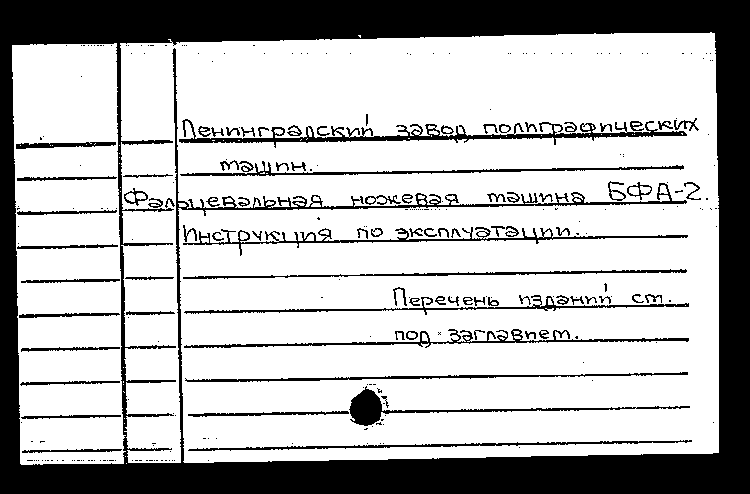 Ленинградский завод полиграфических
машин.
Фальцевальная ножевая машина БФА-2.
Инструкция по эксплуатации.
Перечень изданий см.
под заглавием.